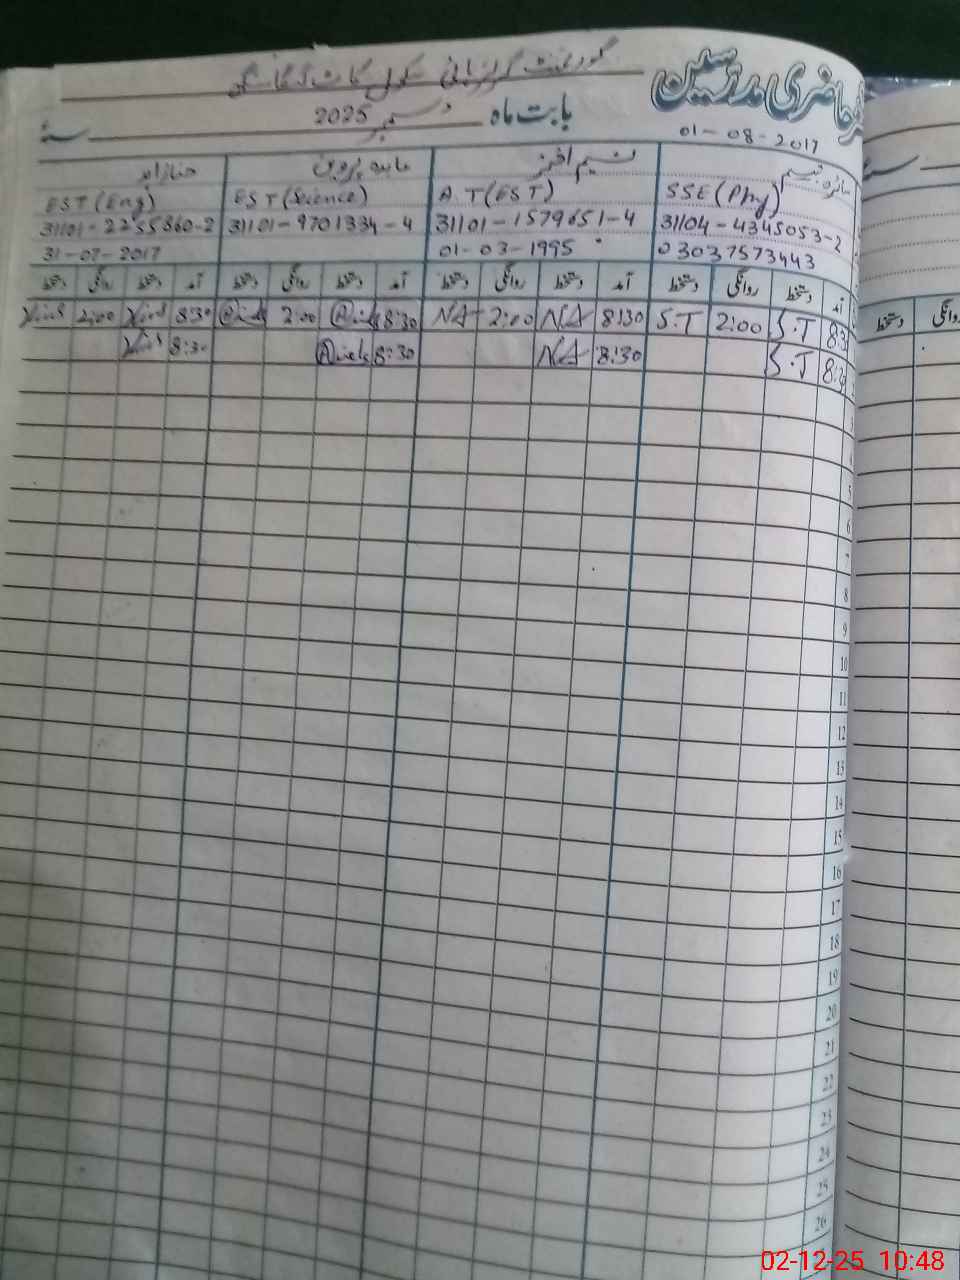 رجسٹر حاضری مدرسین
گورنمنٹ گرلز ہائی سکول
بابت ماہ دسمبر 2025 سنہ
01-08-2017
سائرہ تبسم
نسیم اختر
عابدہ پروین
SSE (Phy)
A.T (EST)
EST (Science)
EST (Eng)
31104-4345053-2
31101-1579651-4
31101-9701334-4
31101-2255860-2
03037573443
01-03-1995
31-07-2017
آمد دستخط روانگی دستخط آمد دستخط روانگی دستخط آمد دستخط روانگی دستخط آمد دستخط روانگی دستخط
8:30 S.T 2:00 S.T 8:30 NA 2:00 NA 8:30 2:00 8:30 2:00
8:30 S.T 8:30 NA 8:30 8:30
3
4
5
6
7
8
9
10
11
12
13
14
15
16
17
18
19
20
21
22
23
24
25
26
روانگی دستخط
02-12-25 10:48